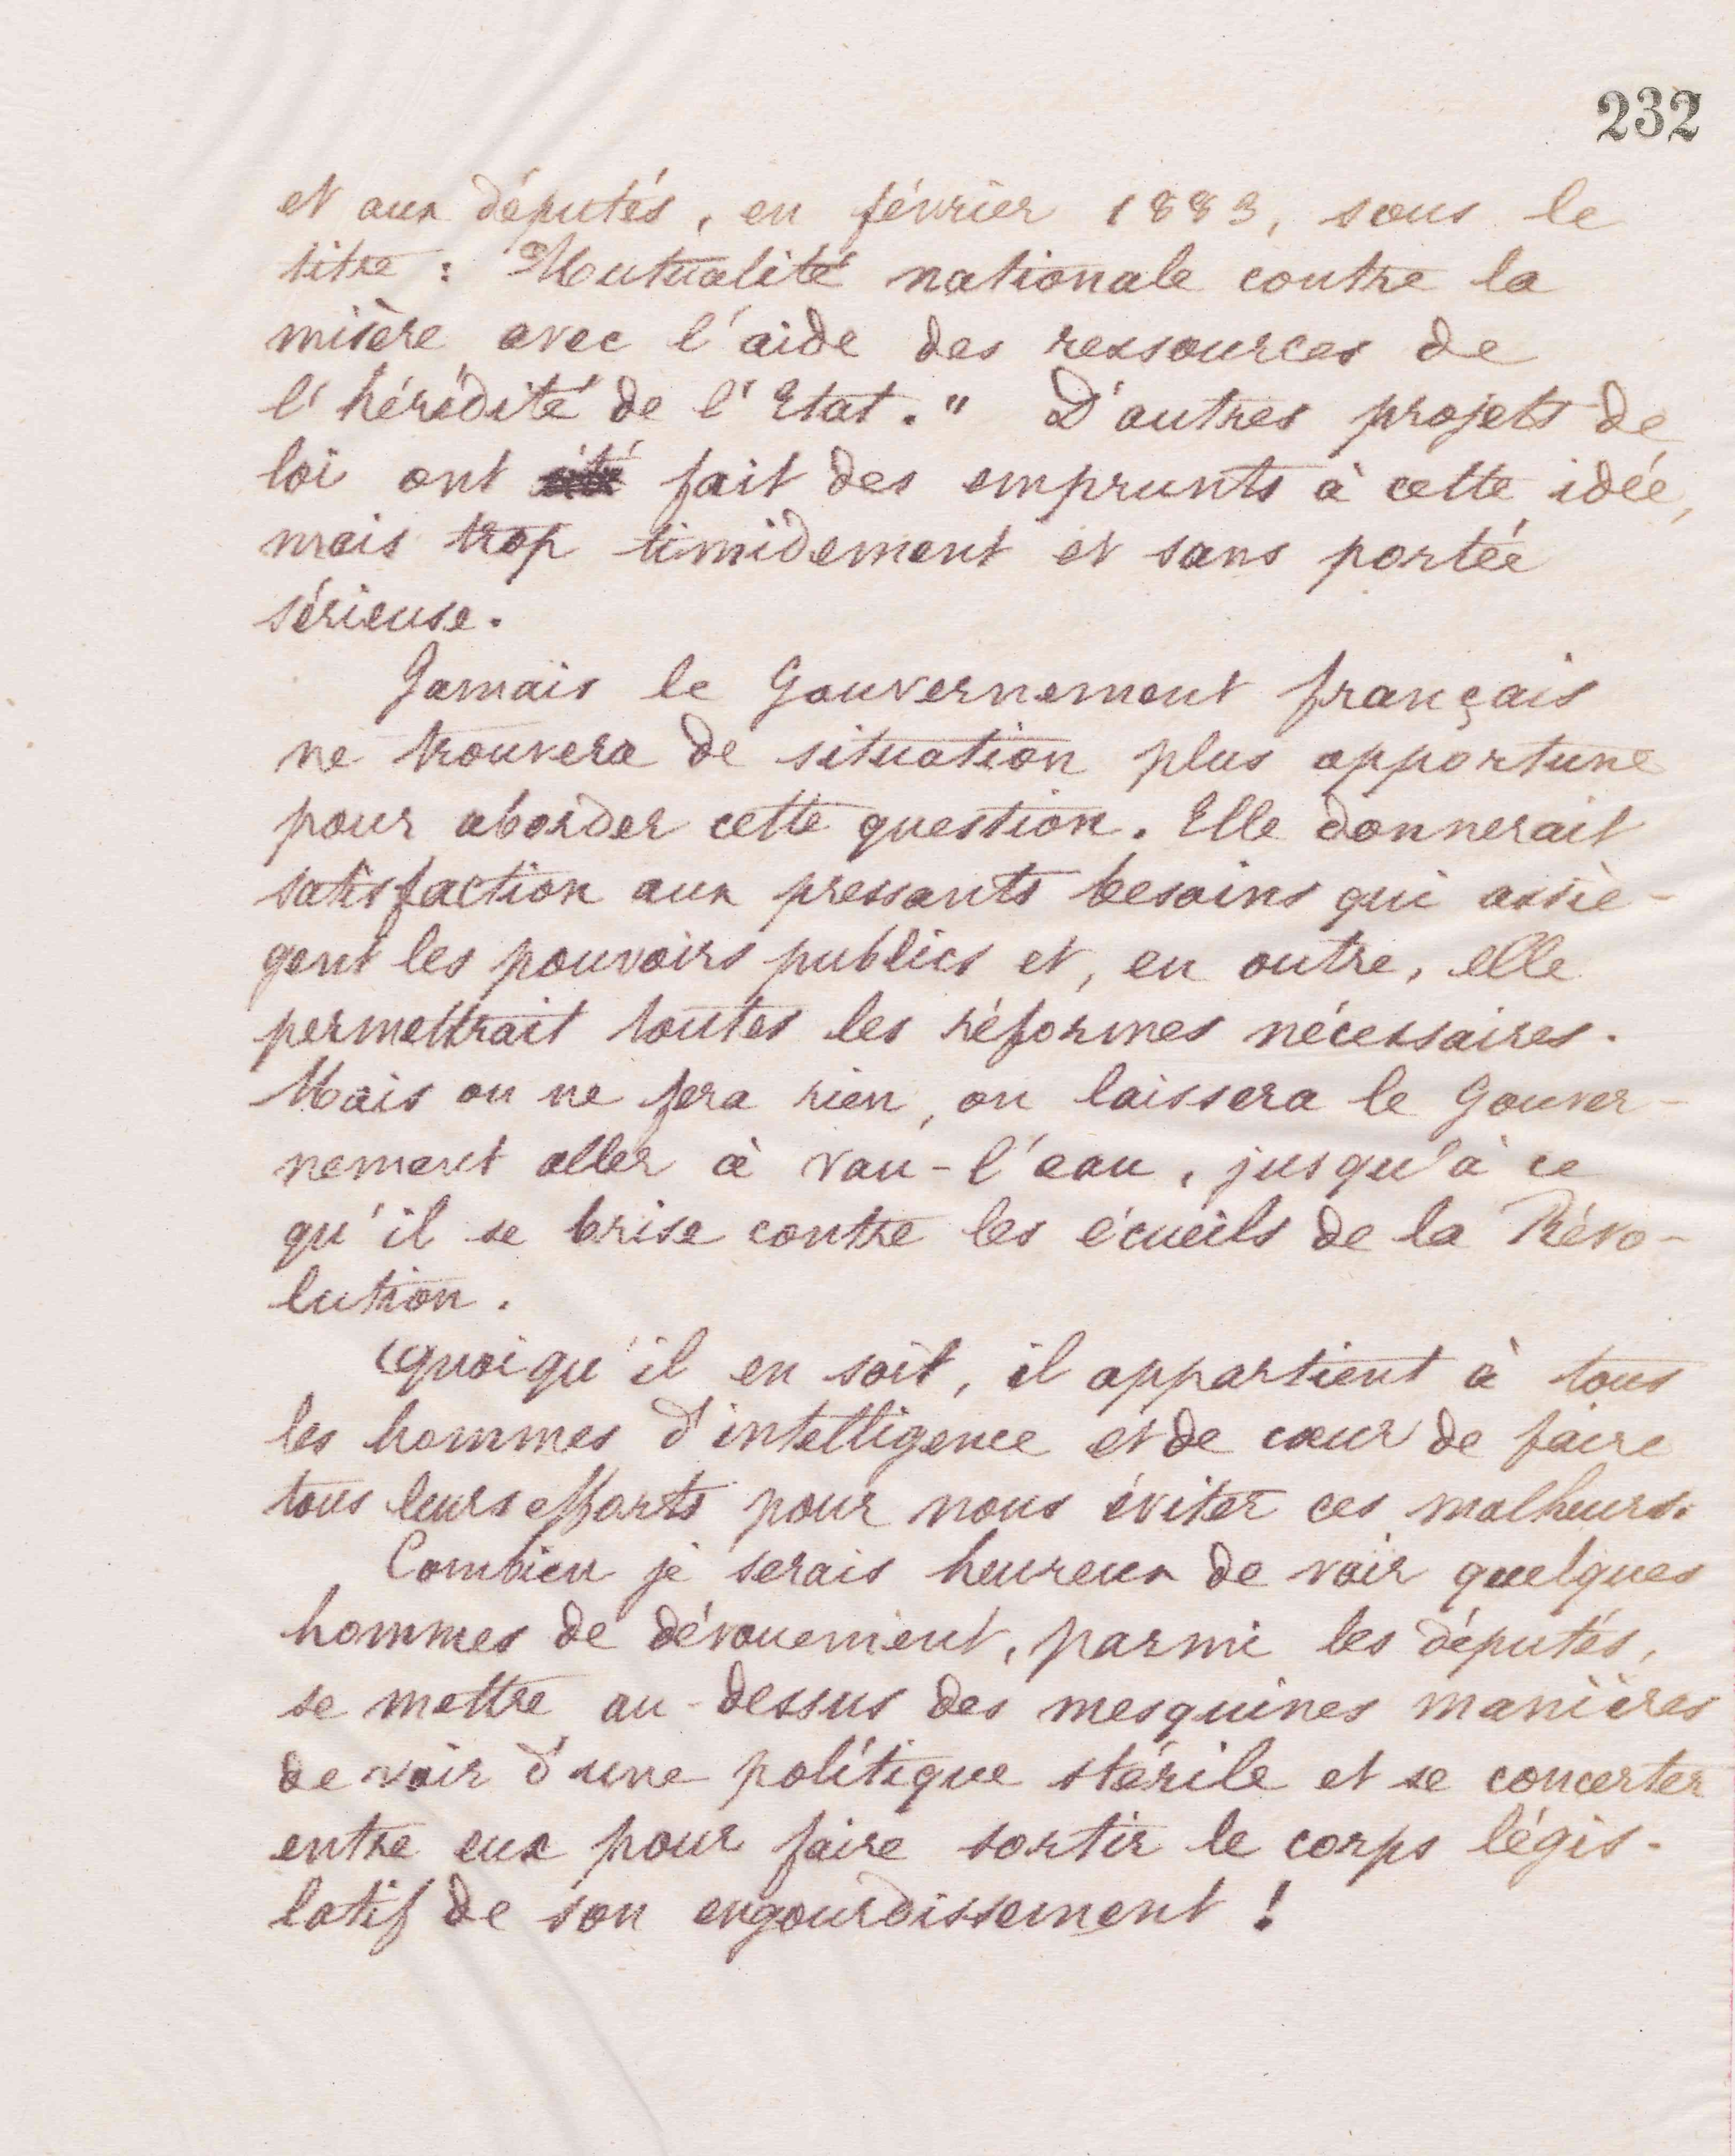 232
et aux députés, en février 1883, sous le
titre : "Mutualité nationale contre la
misère avec l'aide des ressources de
l'hérédité de l'Etat." D'autres projets de
loi ont été fait des emprunts à cette idée,
mais trop timidement et sans portée
sérieuse.
Jamais le Gouvernement français
ne trouvera de situation plus opportune
pour aborder cette question. Elle donnerait
satisfaction aux pressants besoins qui assiè-
gent les pouvoirs publics et, en outre, elle
permettrait toutes les réformes nécessaires.
Mais on ne fera rien, on laissera le Gouver-
nement aller à vau-l'eau, jusqu'à ce
qu'il se brise contre les écueils de la Révo-
lution.
Quoiqu'il en soit, il appartient à tous
les hommes d'intelligence et de cœur de faire
tous leurs efforts pour nous éviter ces malheurs.
Combien je serais heureux de voir quelques
hommes de dévouement, parmi les députés,
se mettre au-dessus des mesquines manières
de voir d'une politique stérile et se concerter
entre eux pour faire sortir le corps légis-
latif de son engourdissement !